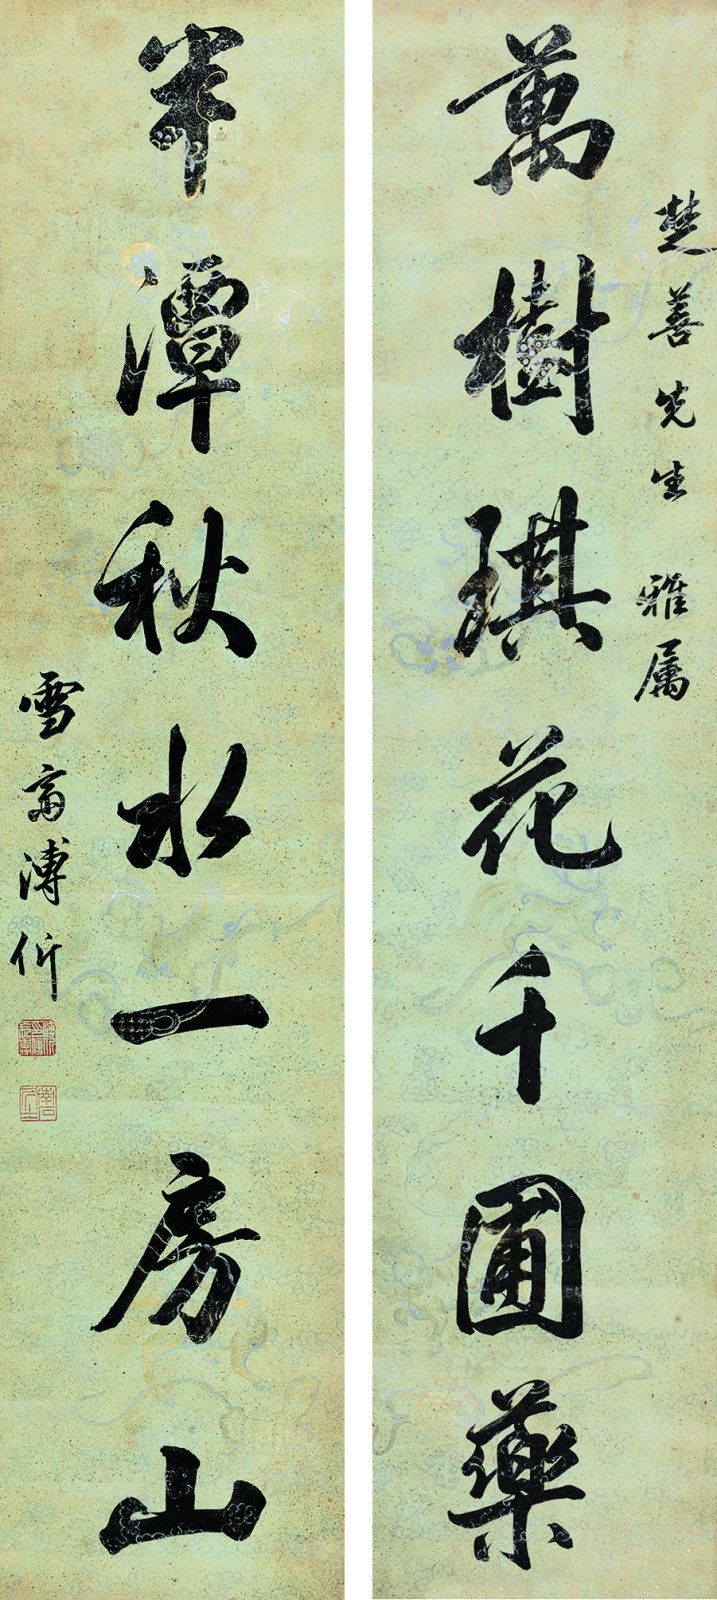 楚善先生 雅属
萬樹琪花千圃藥
半潭秋水一房山
雪斋溥伒